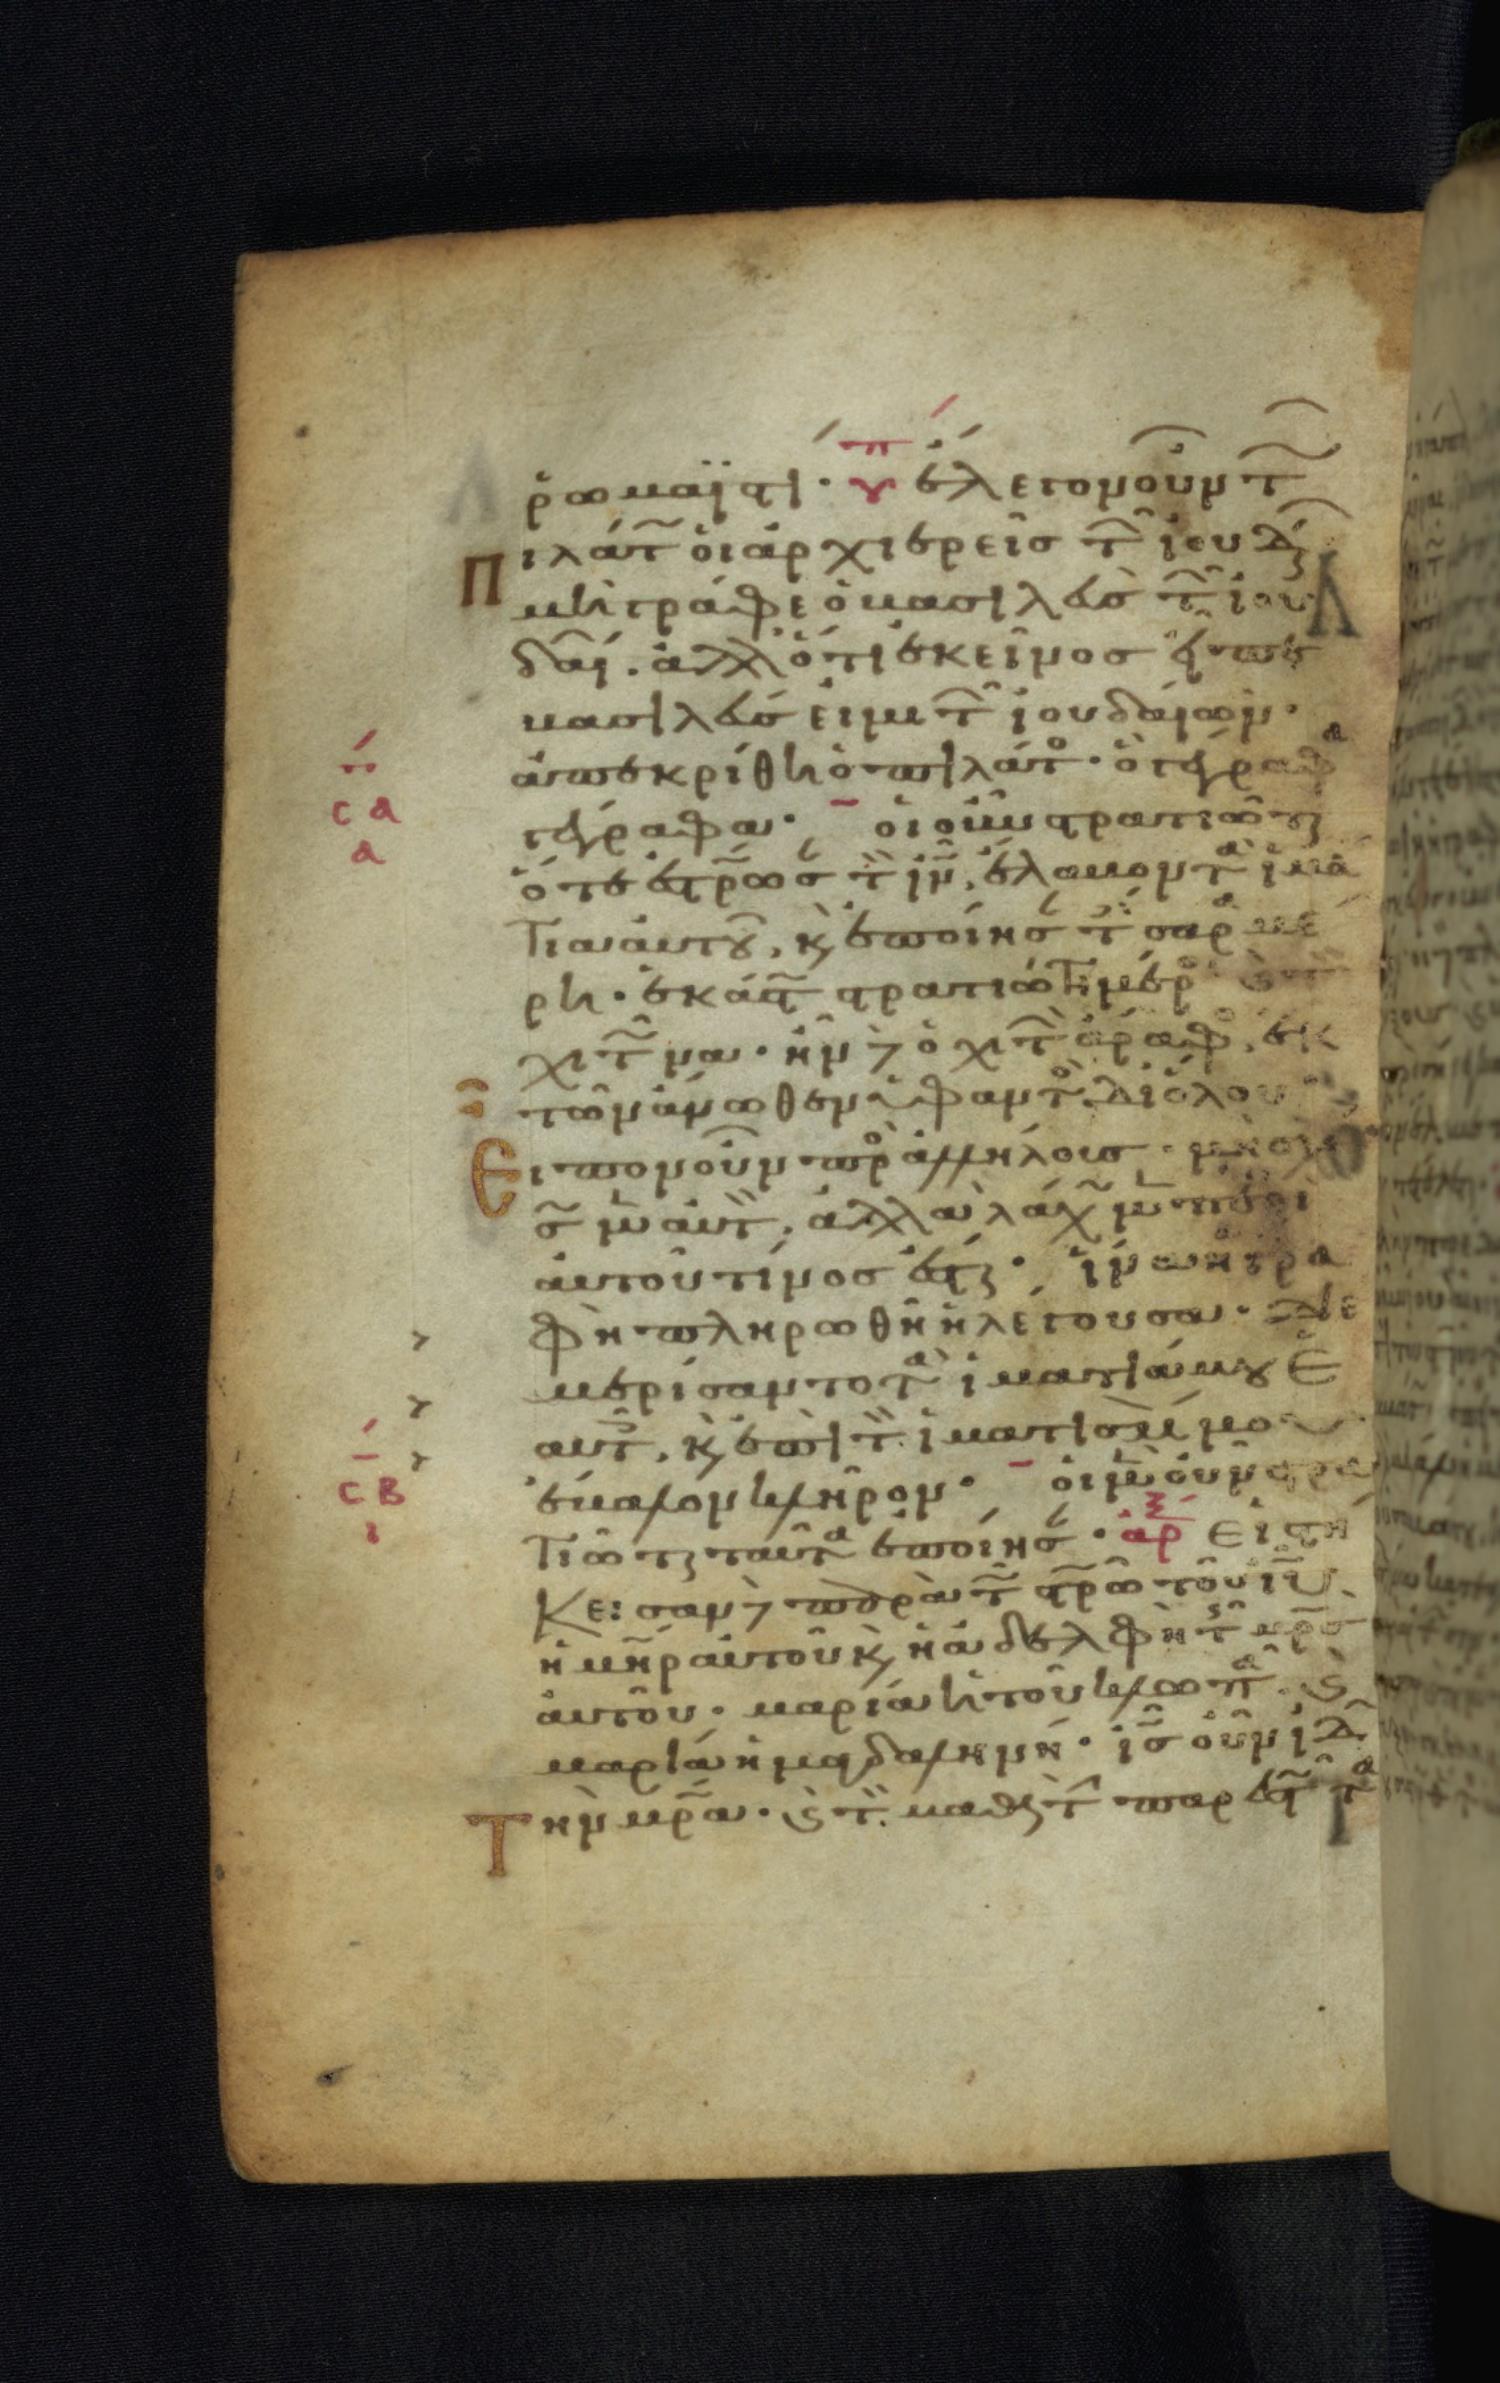 ῥωμαϊστί· ἔλεγον οὖν τ
Πιλάτ οἱ ἀρχιερεῖς τ ἰουδ
μὴ γράφε ὁ βασιλεὺς τ ἰου
δαί. ἀλλ ὅτι ἐκεῖνος εἶπε
βασιλεύς εἰμι τ ἰουδαίων·
ἀπεκρίθη ὁ πιλάτο· ὃ γέγραφα
γέγραφα· οἱ οὖν στρατιῶται
ὅτε ἐστρωσ τ ιν, ἔλαβον τὰ ἱμά
τια αὐτοῦ, κ ἐποίησ τέσσαρα μέ
ρη· ἑκάστ στρατιώτη μέρο
χιτῶνα· ἦν δὲ ὁ χιτ ἄραφο, ἐκ
τῶν ἄνωθεν ὑφαντο δι' ὅλου
Εἶπον οὖν πρὸ ἀλλήλους· μὴ σχί
σ αὐτ, ἀλλὰ λάχ περὶ
αὐτοῦ τίνος ἔσται· ἵνα ἡ γρα
φὴ πληρωθῇ ἡ λέγουσα· Διε
μερίσαντο τὰ ἱμάτιά μου ἑ
αυτ, κ ἐπὶ τ ἱματισμ μου
ἔβαλον κλῆρον· οἱ μὲν οὖν στρα
τιῶται ταῦτα ἐποίησ· ἀρ Εἱστή
κεισαν δὲ παρὰ τ στρῶ τοῦ ιυ
ἡ μηρ αὐτοῦ κ ἡ ἀδελφὴ τῆς μρσ
αὐτοῦ· μαρία ἡ τοῦ κλωπᾶ
μαρία ἡ μαγδαληνή· ισ οὖν ἰδ
Τὴν μρα· κ τ μαθητ παρεστ
σα
α
σβ
ι